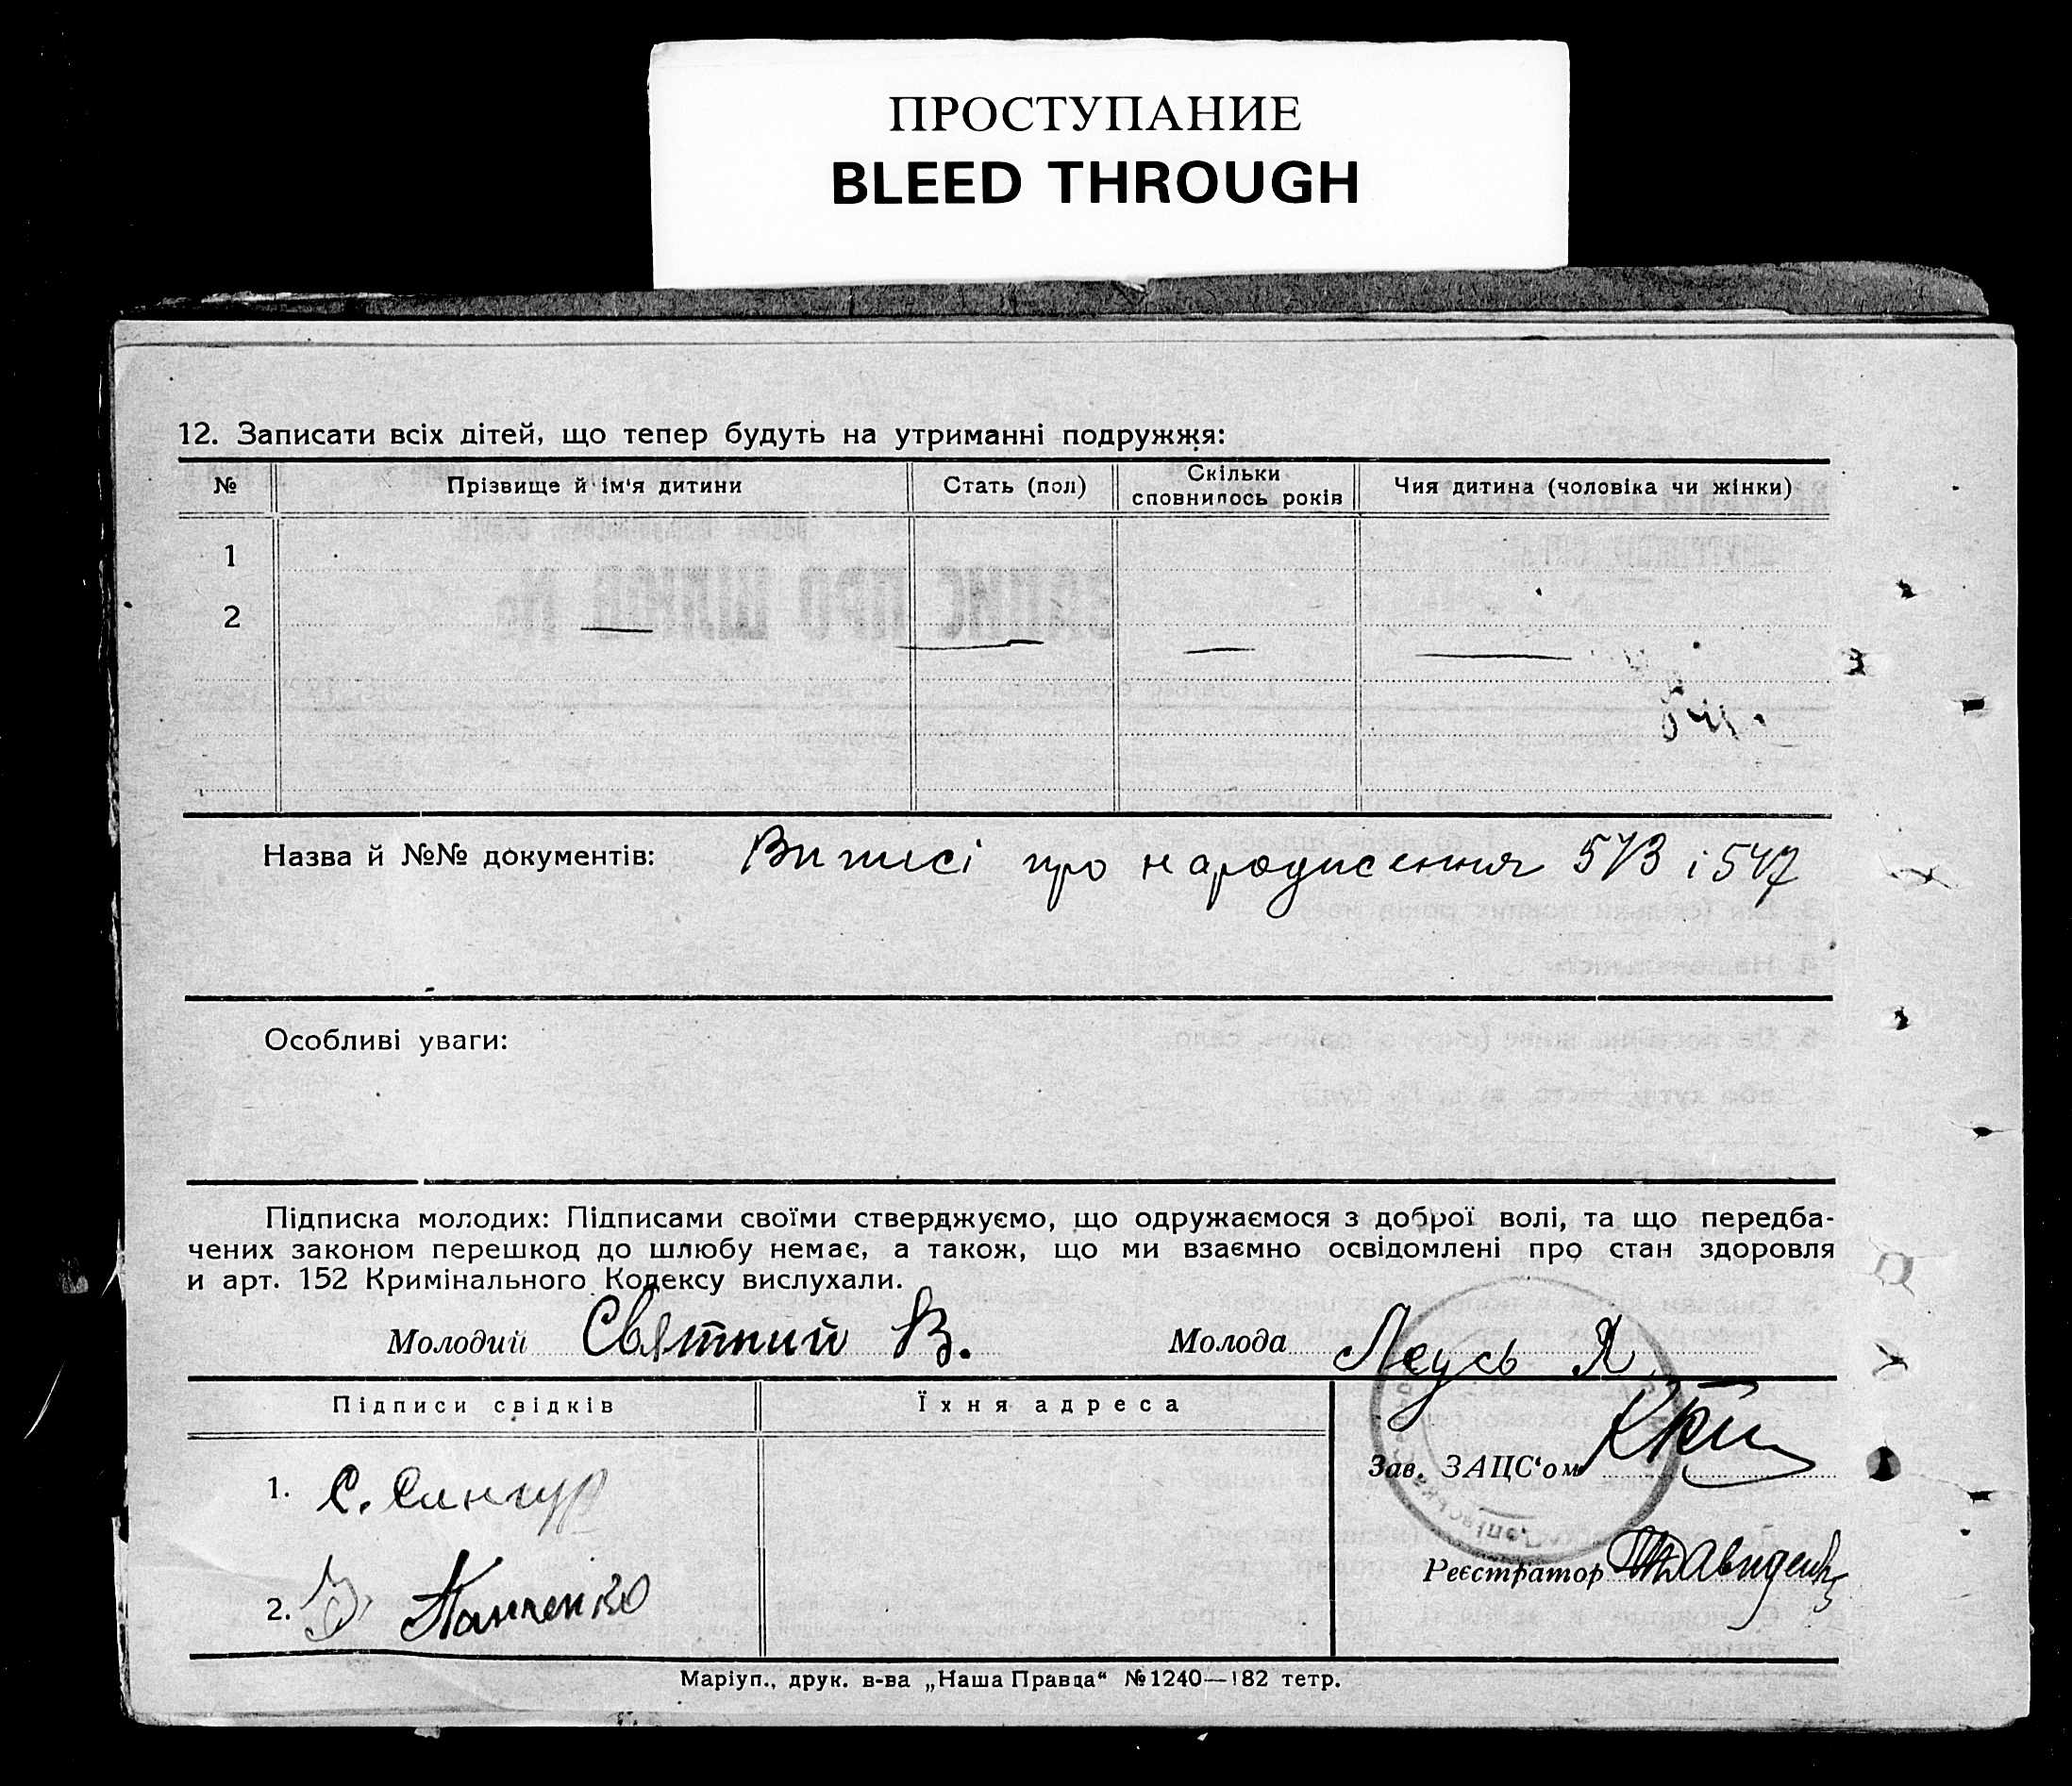 ПРОСТУПАНИЕ
BLEED THROUGH
12. Записати всіх дітей, що тепер будуть на утриманні подружжя:
№ Прізвище й ім'я дитини Стать (пол) Скільки сповнилось років Чия дитина (чоловіка чи жінки)
1
2
Назва й №№ документів: Витисі про народження 573 і 547
Особливі уваги:
Підписка молодих: Підписами своїми стверджуємо, що одружаємося з доброї волі, та що передба-
чених законом перешкод до шлюбу немає, а також, що ми взаємно освідомлені про стан здоровля
и арт. 152 Кримінального Кодексу вислухали.
Молодий Святний В. Молода Леусь Я
Підписи свідків Їхня адреса
Зав. ЗАЦС'ом
1. С.
2. Панченко
Реєстратор Давиденко
Маріуп., друк. в-ва „Наша Правда“ №1240—182 тетр.